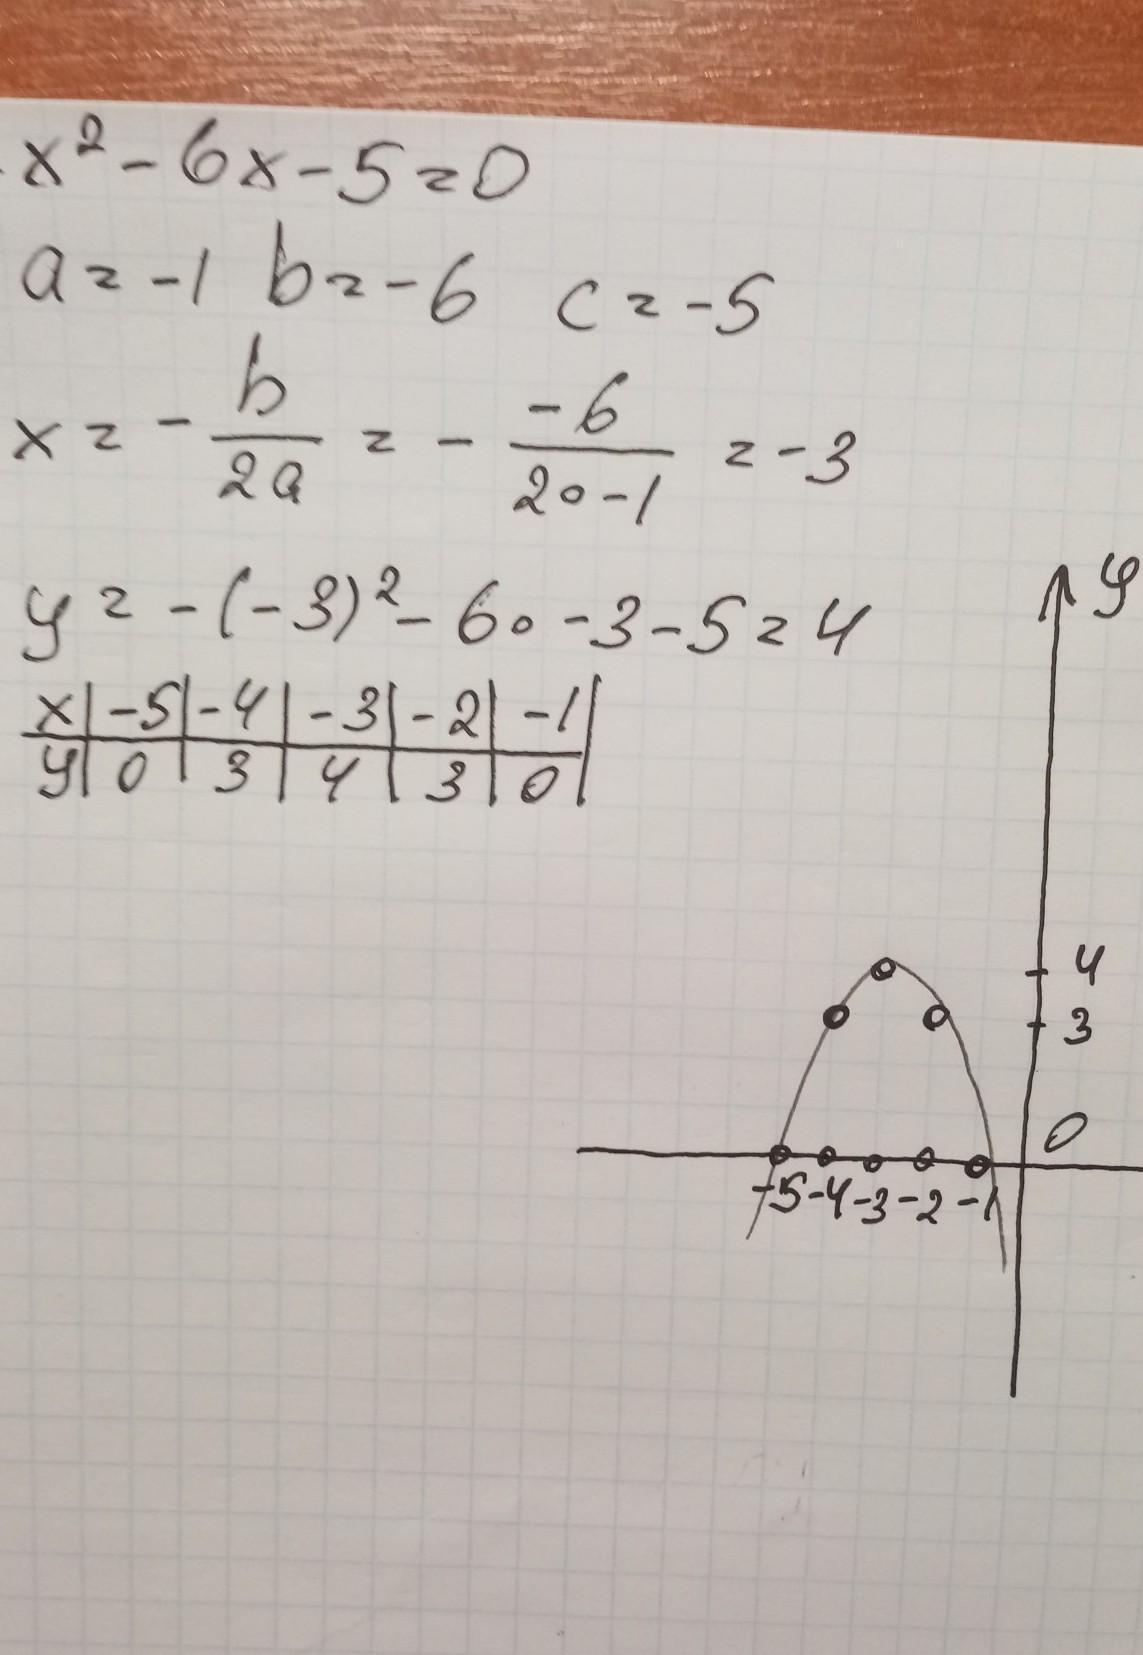 -x² - 6x - 5 = 0
a = -1 b = -6 c = -5
x = - b/2a = - -6/2∘-1 = -3
y = -(-3)² - 6∘-3 - 5 = 4
x | -5 | -4 | -3 | -2 | -1 |
y | 0 | 3 | 4 | 3 | 0 |
y
4
3
0
-5 -4 -3 -2 -1